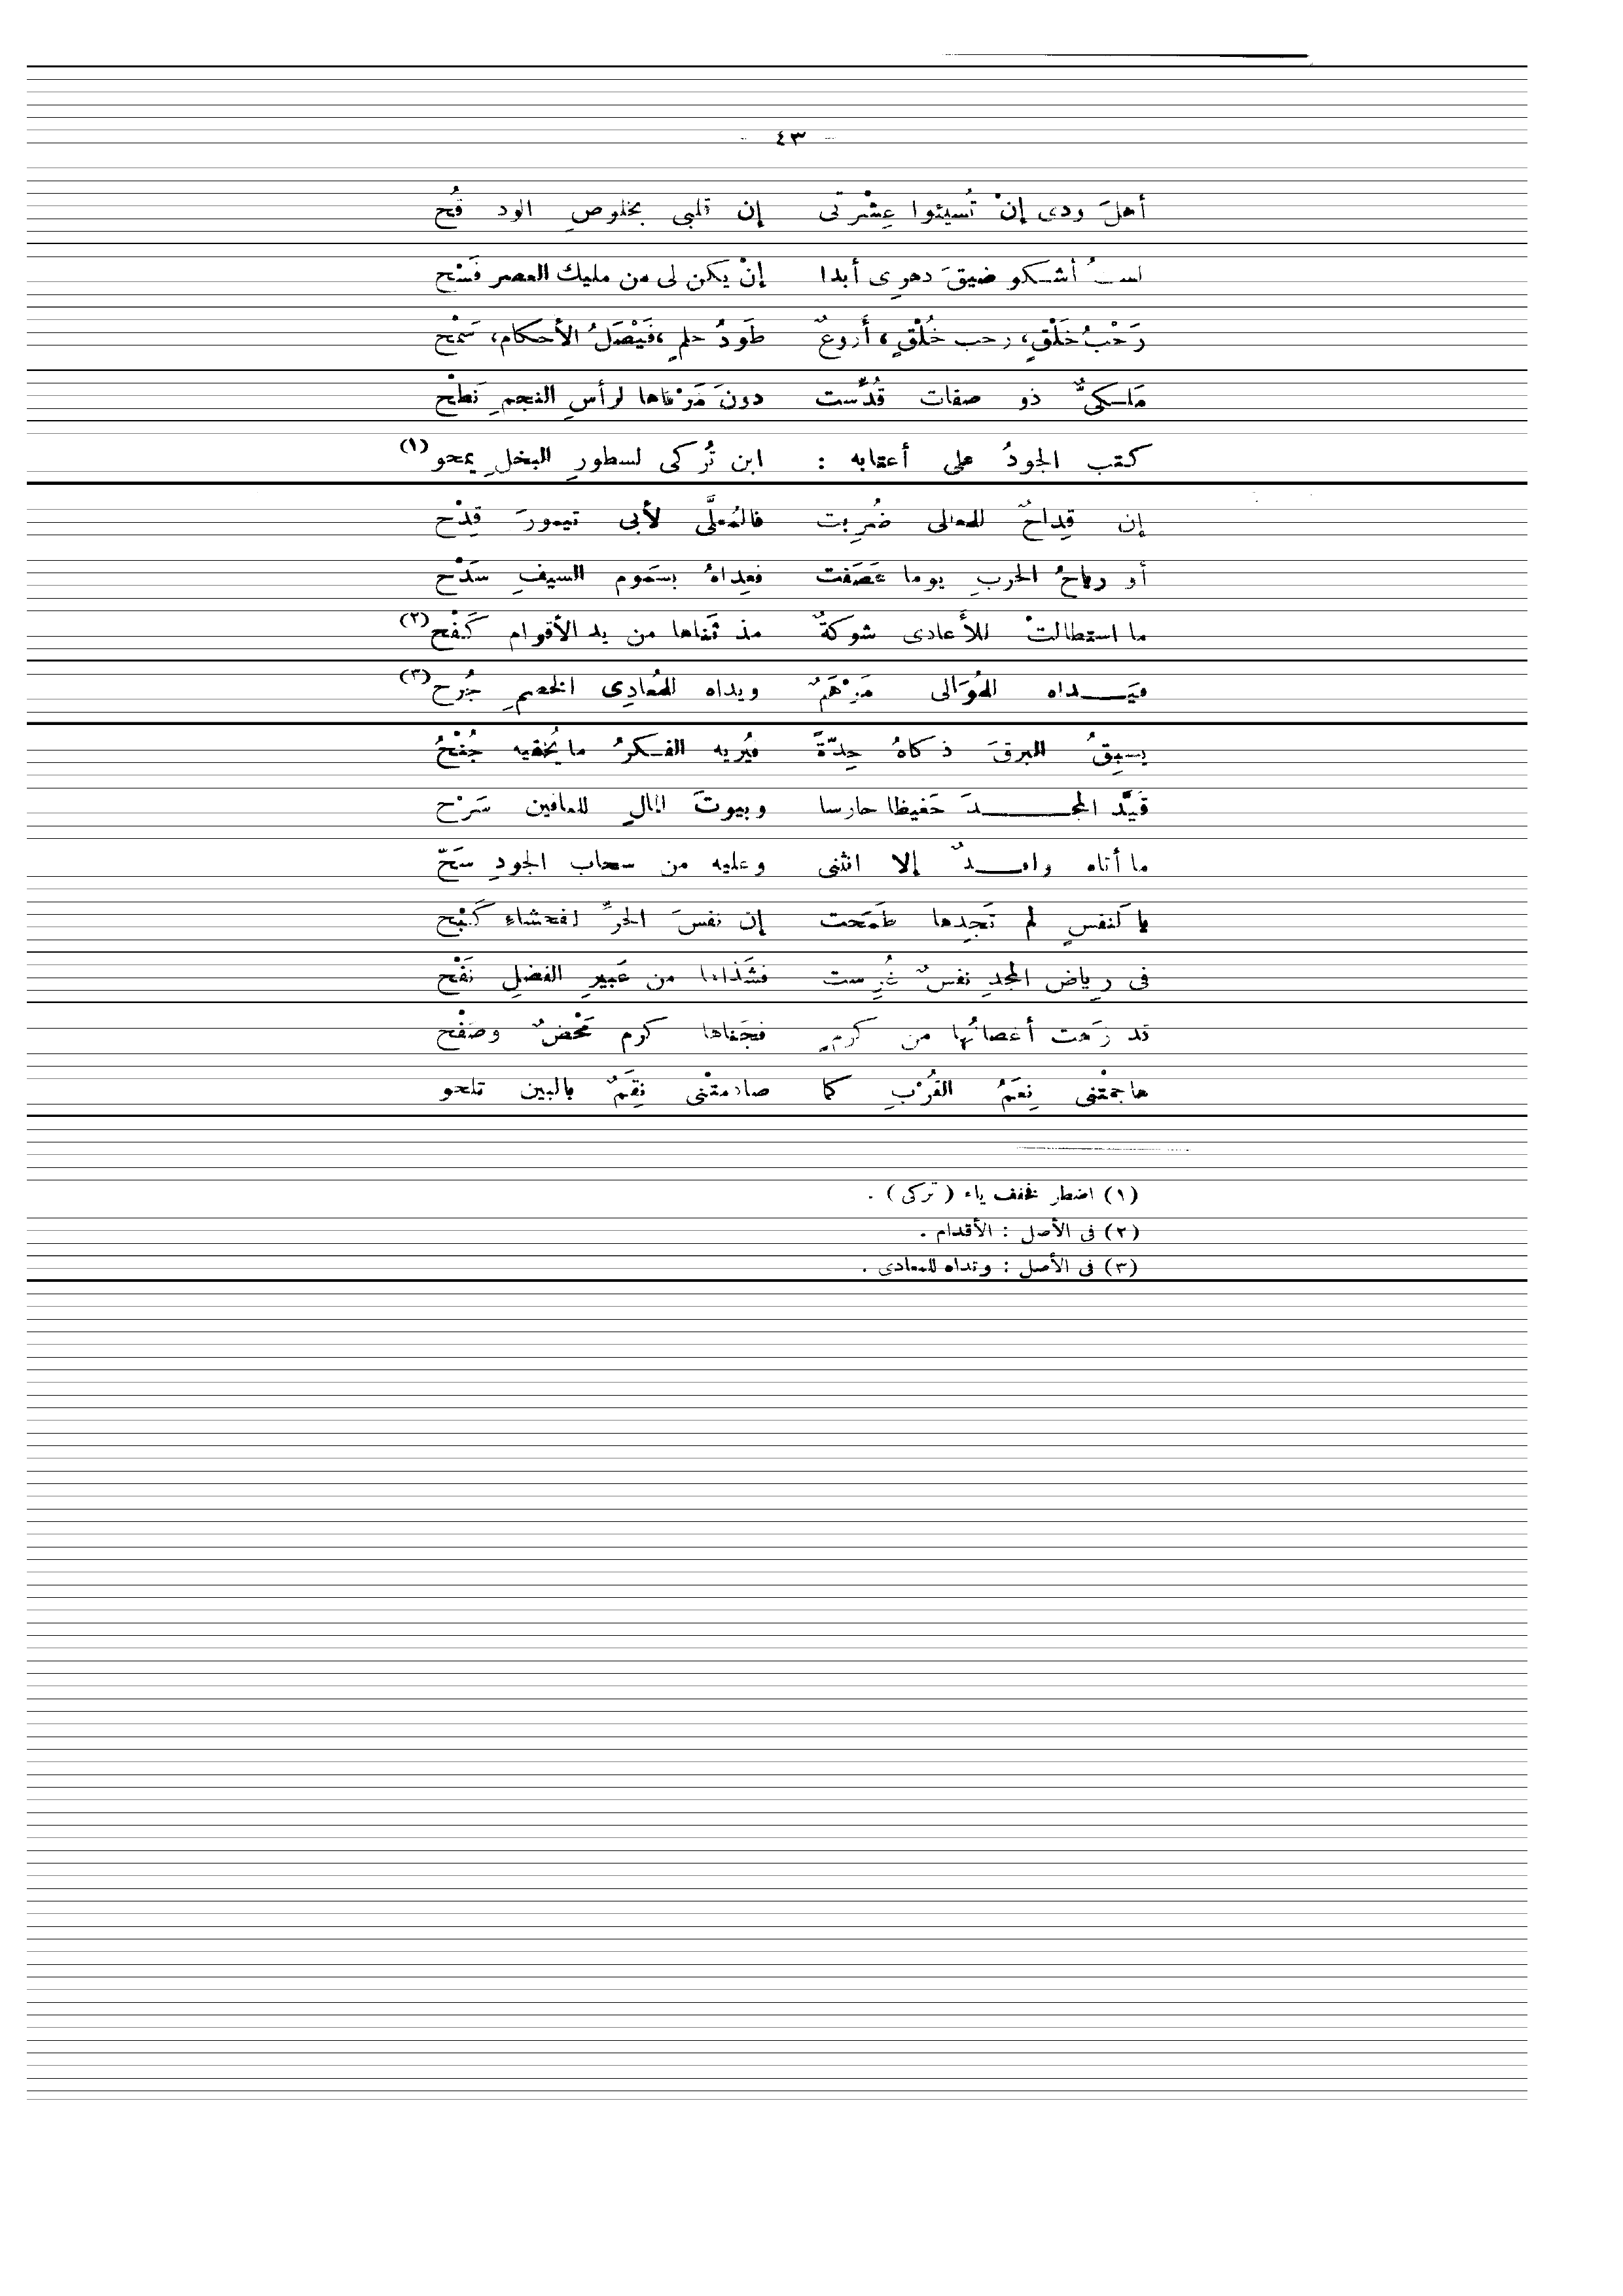 - ٤٣ -
أهلَ ودى إنْ تُسيئوا عِشْرتى إن قلبى بخلوصِ الود قُح
لستُ أشكو ضيقَ دهرِى أبدا إنْ يكن لى من مليك العصر فَسْح
رَحْبُ خَلْقٍ، رحب خُلْقٍ، أروعٌ طَودُ حلمٍ، فَيْصَلُ الأحكام، سَمْح
مَلِكىٌّ ذو صفات قُدِّست دونَ مَرْقاها لرأسِ النجمِ نَطْح
كتب الجودُ على أعتابه : ابن تُركى لسطورِ البخلِ يمحو (١)
إن قِداحٌ للمعالى ضُرِبت فالمُعلَّى لأبى تيمورَ قِدْح
أو رياحُ الحربِ يوما عَصَفت فعِداهُ بسَموم السيفِ سَدْح
ما استطالتْ للأعادى شوكةٌ مذ ثَناها من يد الأقوام كَفْح (٢)
فيَداه للمُوَالى مَرْهَمٌ ويداه للمُعادِى الخصمِ جُرح (٣)
يسبِقُ البرقَ ذكاهُ حِدّةً فيُريه الفكرُ ما يُخفيه جُنْحُ
قَيَّد المجدَ حَفيظا حارسا وبيوتَ المالِ للعافين سَرْح
ما أتاه وافدٌ إلا انثنى وعليه من سحاب الجودِ سَحّ
يا لَنفسٍ لم تَجِدها طَمَحت إن نفسَ الحرِّ لفحشاء كَبْح
فى رياض المجدِ نفسٌ غُرِست فشَذاها من عَبيرِ الفضلِ نَفْح
قد زَهت أعصانُها من كرمٍ فجَناها كرم مَحْضٌ وصَفْح
هاجمتْنى نِعَمُ القُرْبِ كما صادمتْنى نِقَمٌ بالبين تلحو
(١) اضطر فخفف ياء (تركى) .
(٢) فى الأصل : الأقدام .
(٣) فى الأصل : ونداه للمعادى .